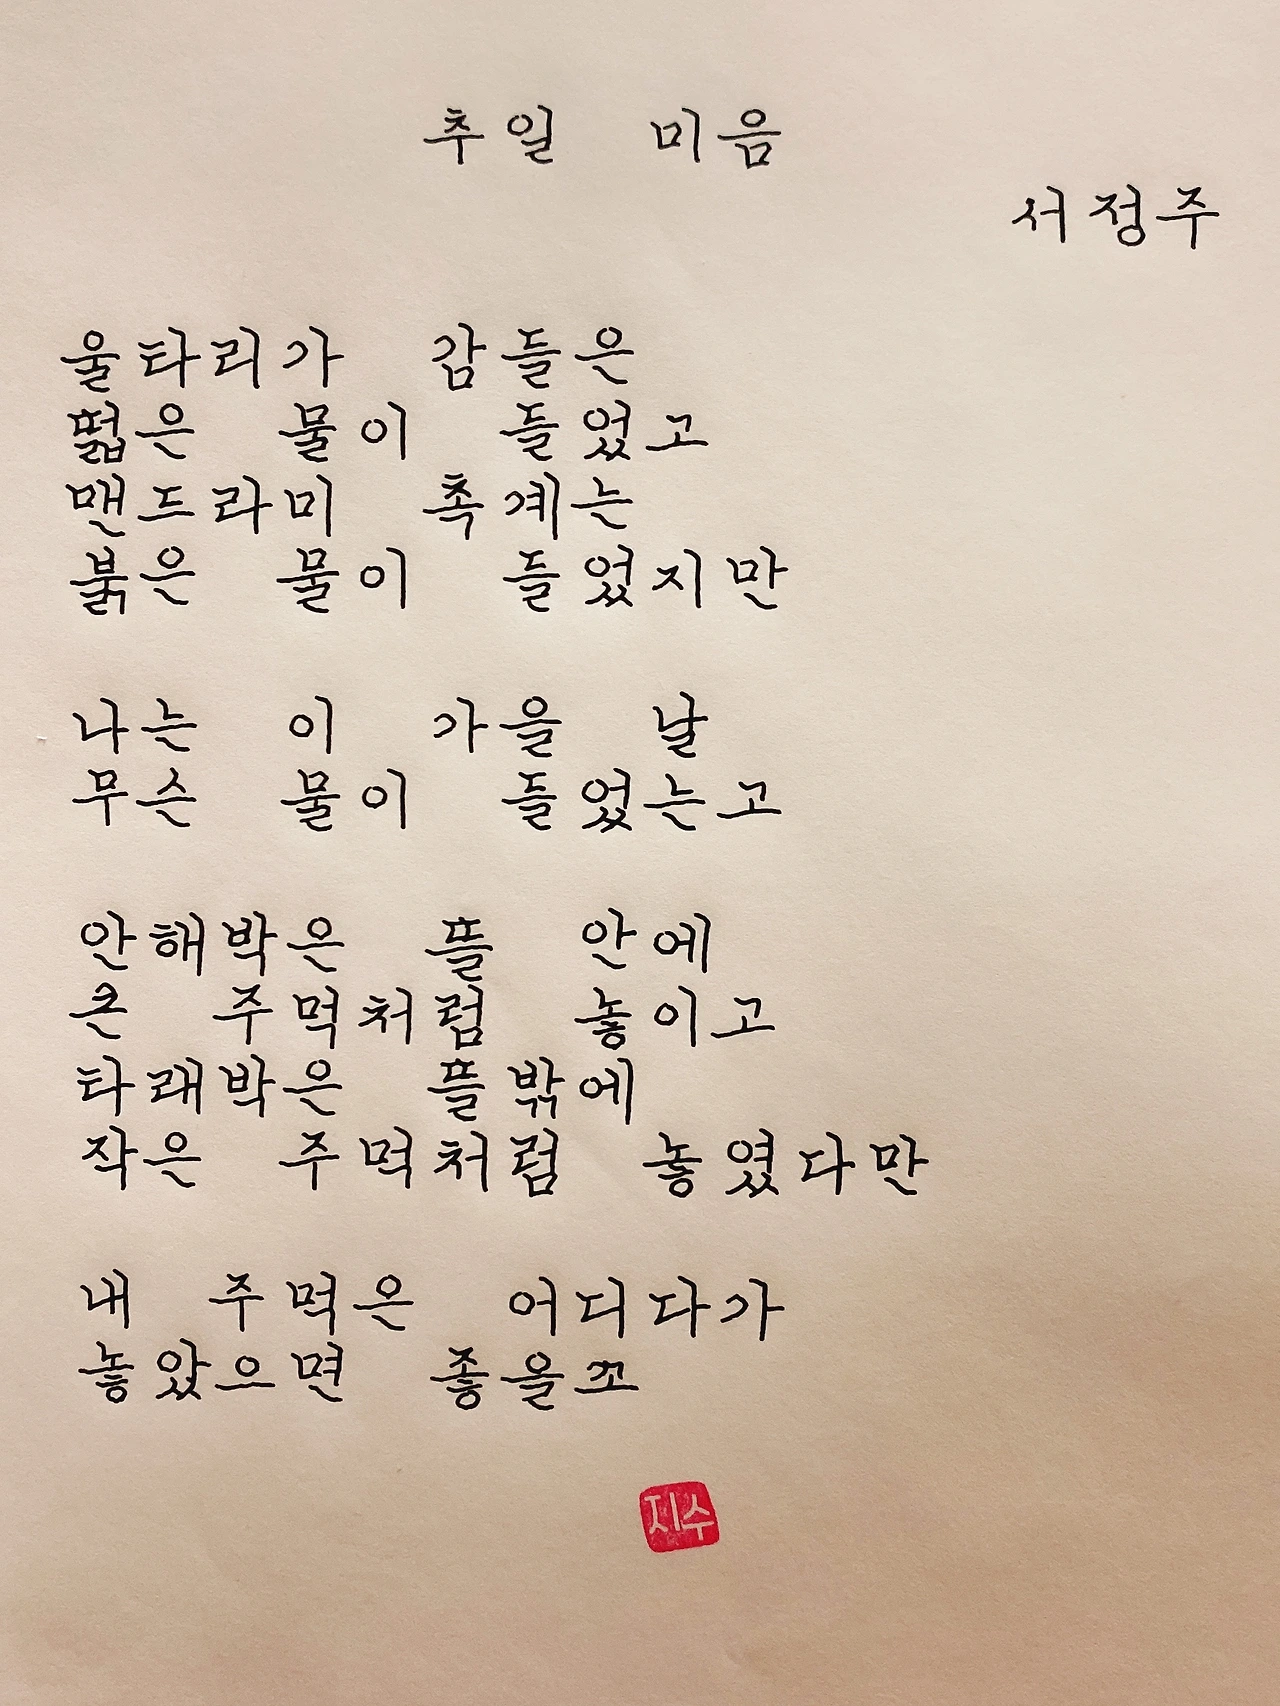 추일 미음
서정주
울타리가 감들은
떫은 물이 들었고
맨드라미 촉계는
붉은 물이 들었지만
나는 이 가을 날
무슨 물이 들었는고
안해박은 뜰 안에
큰 주먹처럼 놓이고
타래박은 뜰밖에
작은 주먹처럼 놓였다만
내 주먹은 어디다가
놓았으면 좋을꼬
지수